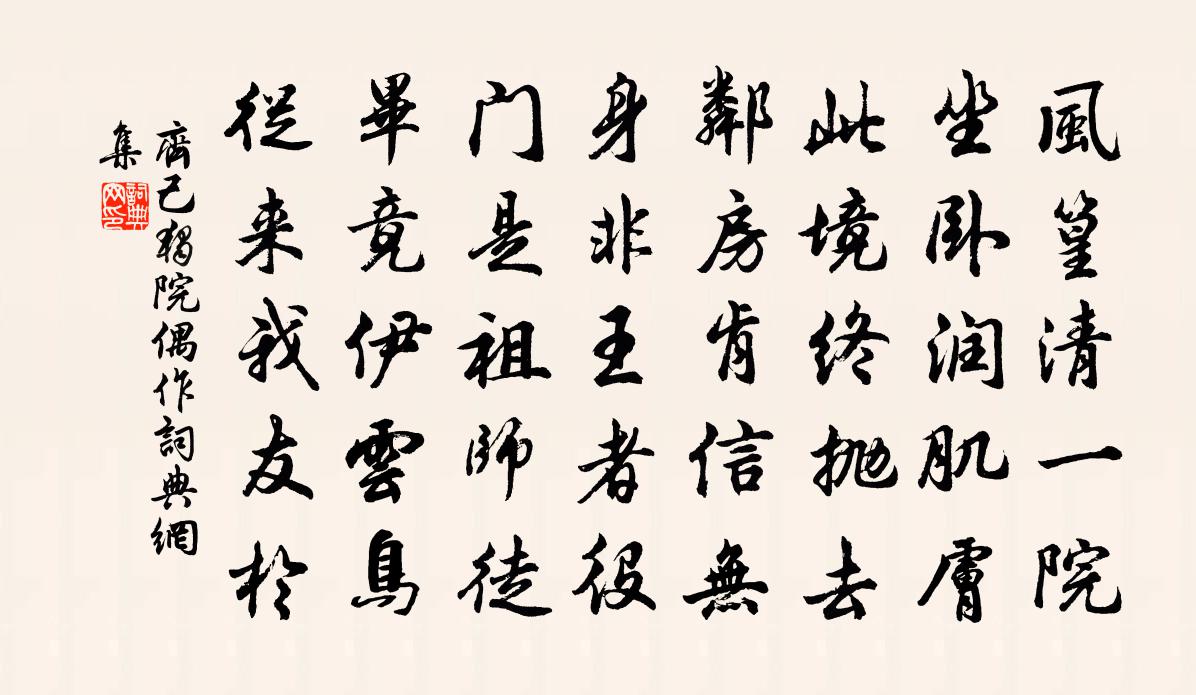 風篁清一院
坐卧润肌膚
此境终抛去
鄰房肯信無
身非王者役
门是祖師徒
畢竟伊雲鳥
從来我友於
齊己獨院偶作詞典網
集
詞典网印